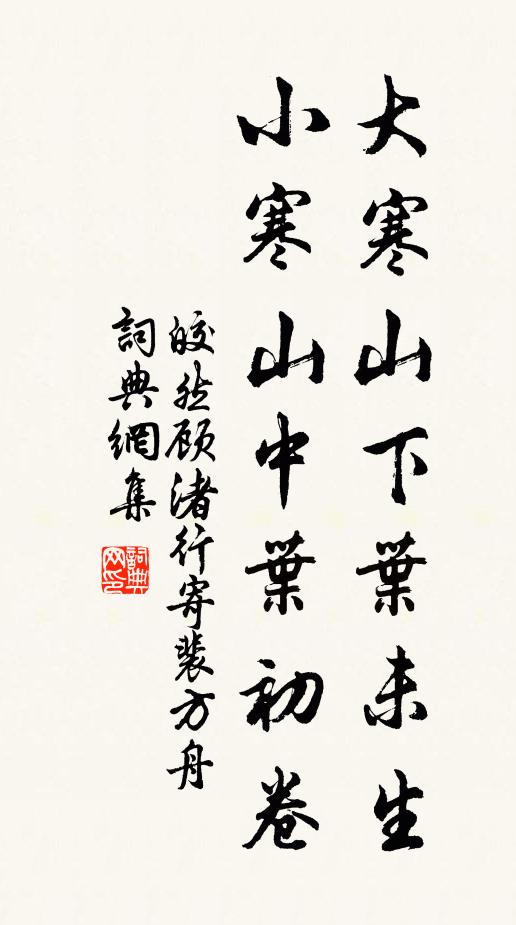 大寒山下葉未生
小寒山中葉初卷
皎然顾渚行寄裴方舟
詞典網集
詞典网印